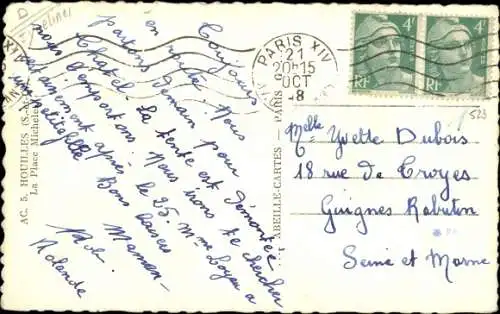 Toujours
en route. Nous
partons demain pour
Chatel. La tente est démontée
nous l'emportons. Nous irons te chercher
certainement après le 25. Mme Loyen a
une petite fille. Bons baisers
Maman
Rolande
AC. 5. HOUILLES (S.-
La Place Michelet
ABEILLE-CARTES - PARIS
PARIS XIV
21
20h15
OCT
4F
RF
4F
RF
523
Melle Yvette Dubois
18 rue de Troyes
Guignes Rabutin
Seine et Marne